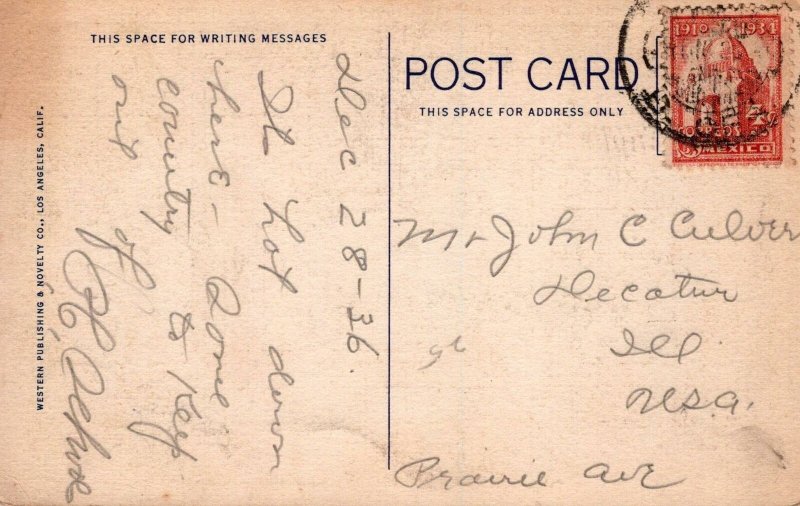 THIS SPACE FOR WRITING MESSAGES
Dec 28-36.
Is hot down
here- Some
country to Keep
out of
WESTERN PUBLISHING & NOVELTY CO., LOS ANGELES, CALIF.
POST CARD
THIS SPACE FOR ADDRESS ONLY
1910 1934
CORREOS
MEXICO
Mr John C Culver
Decatur
Ill
USA.
Prairie Ave